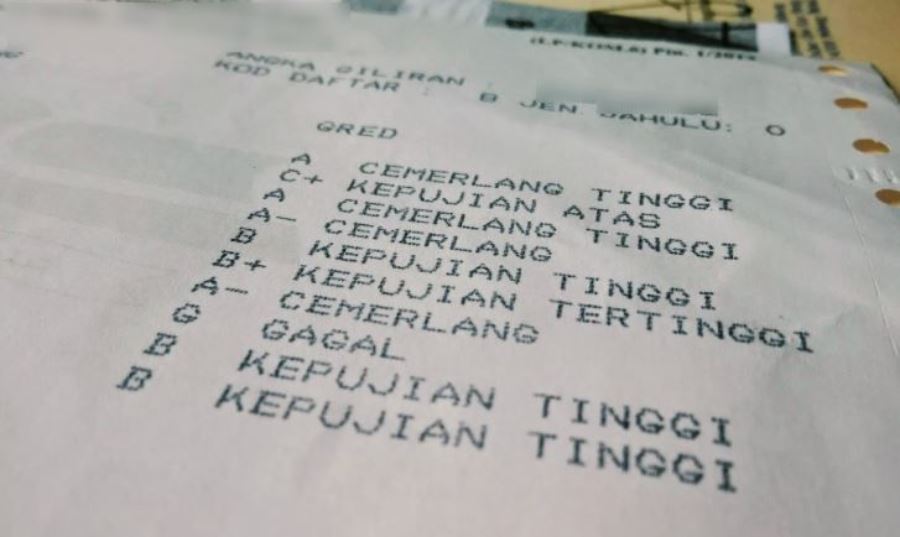 (LP-KOM.6) Pin. 1/2012
ANGKA GILIRAN :
KOD DAFTAR : B JEN DAHULU: 0
GRED
A CEMERLANG TINGGI
C+ KEPUJIAN ATAS
A CEMERLANG TINGGI
A- CEMERLANG
B KEPUJIAN TINGGI
B+ KEPUJIAN TERTINGGI
A- CEMERLANG
G GAGAL
B KEPUJIAN TINGGI
B KEPUJIAN TINGGI